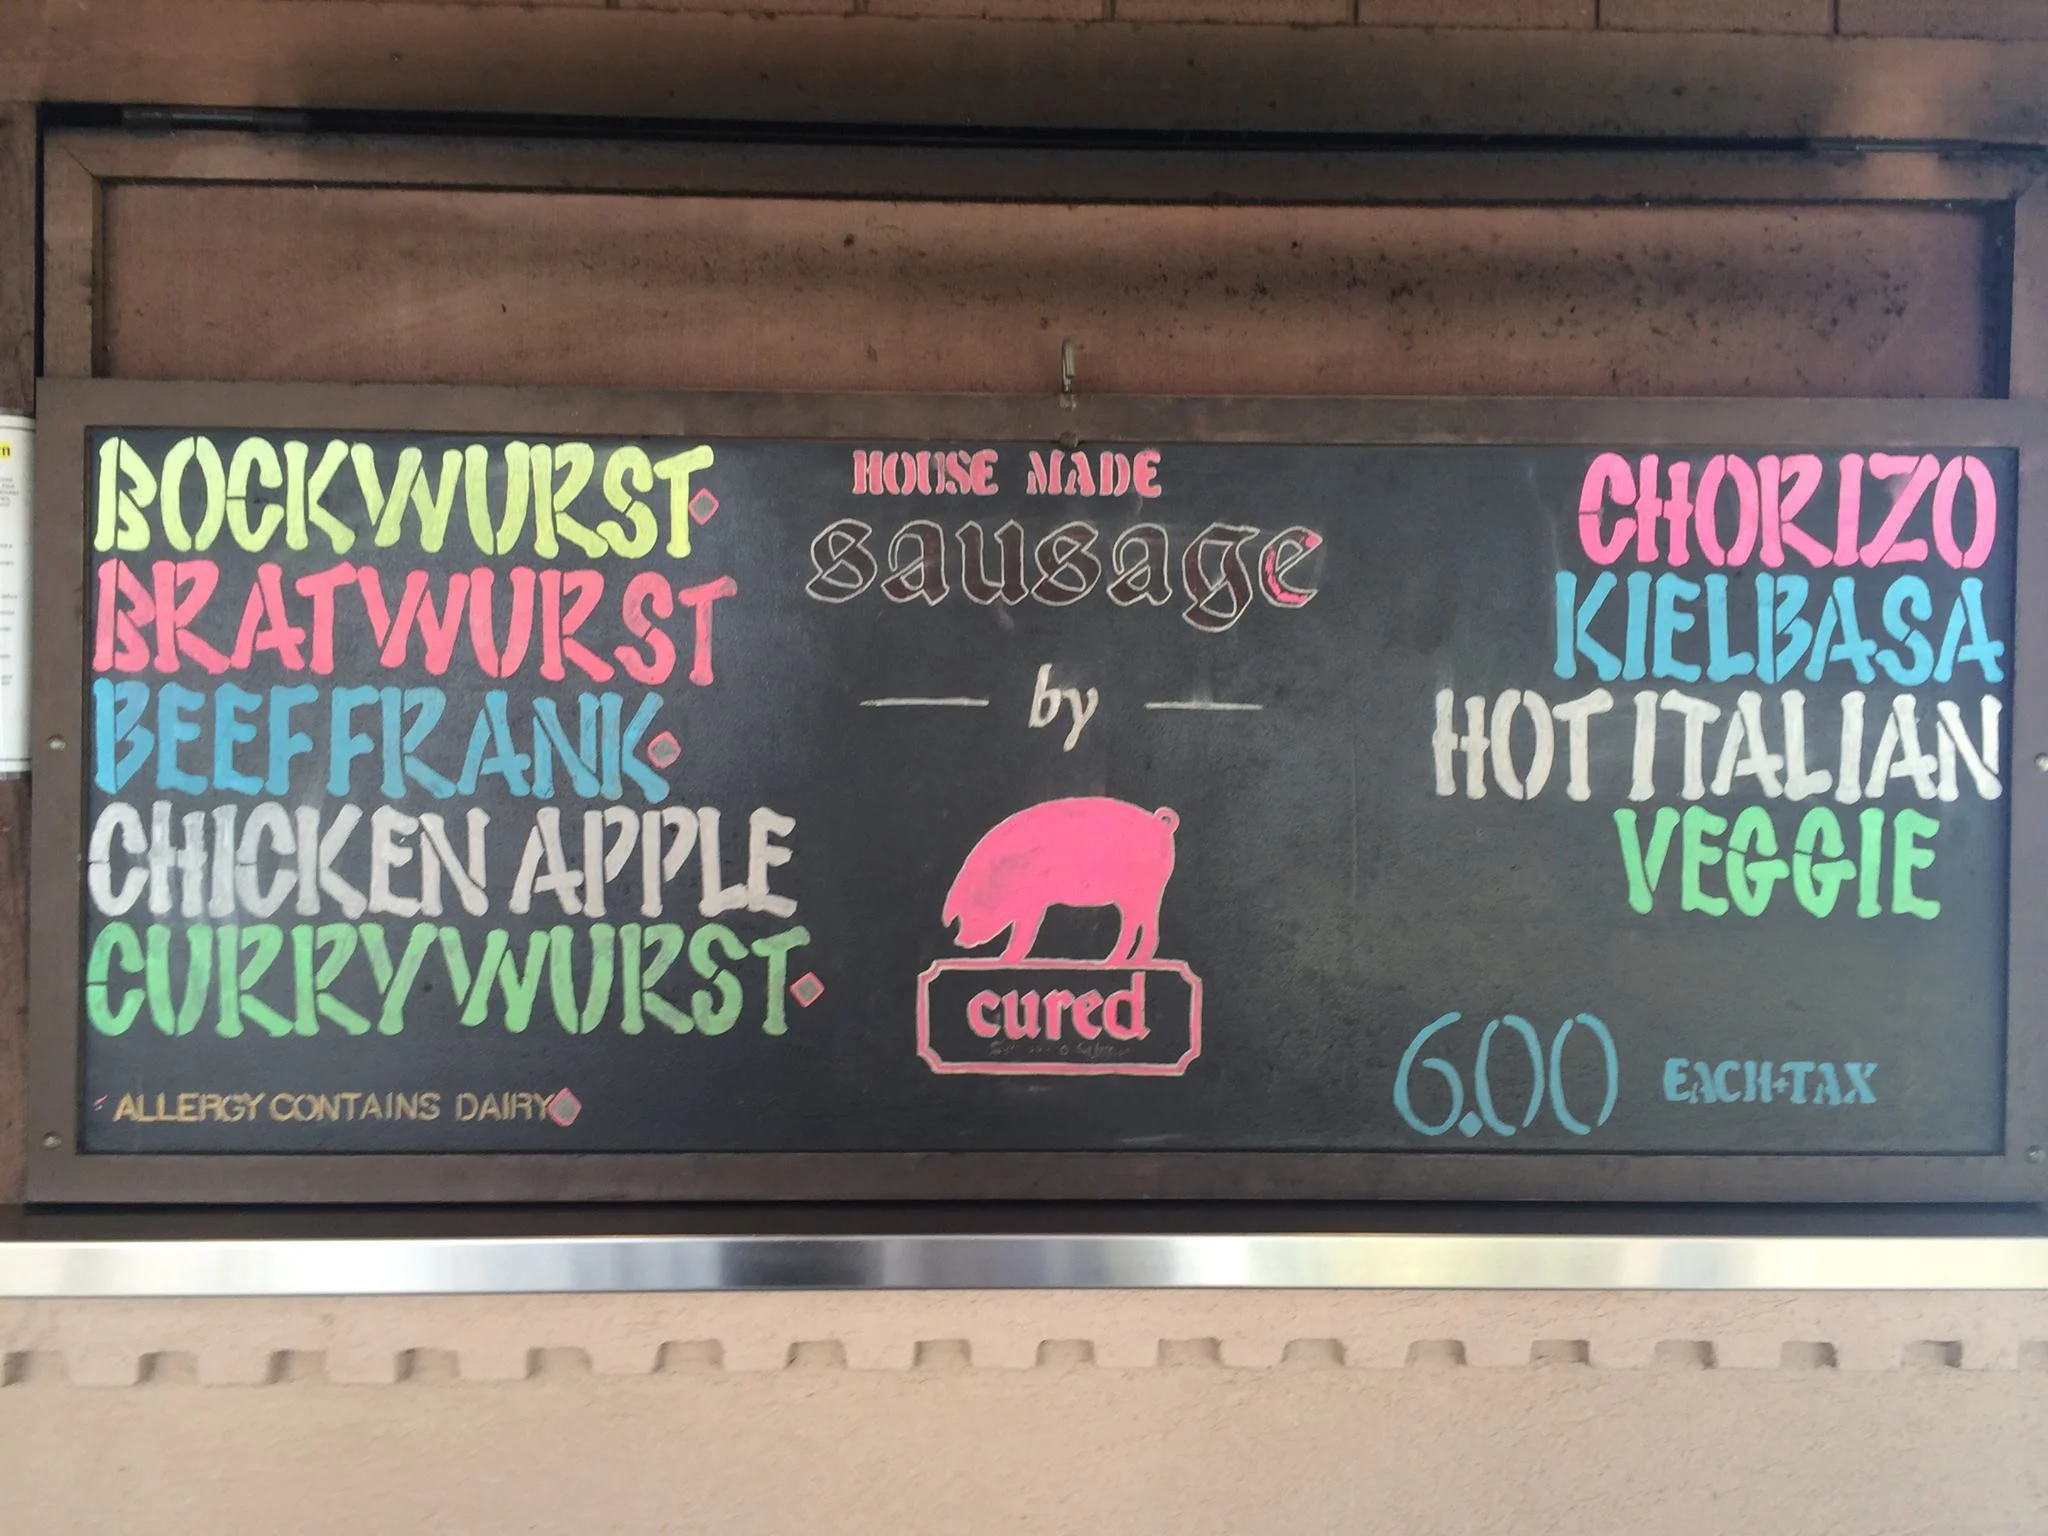 BOCKWURST
BRATWURST
BEEF FRANK
CHICKEN APPLE
CURRYWURST
ALLERGY CONTAINS DAIRY
HOUSE MADE
sausage
by
cured
CHORIZO
KIELBASA
HOT ITALIAN
VEGGIE
6.00 EACH+TAX